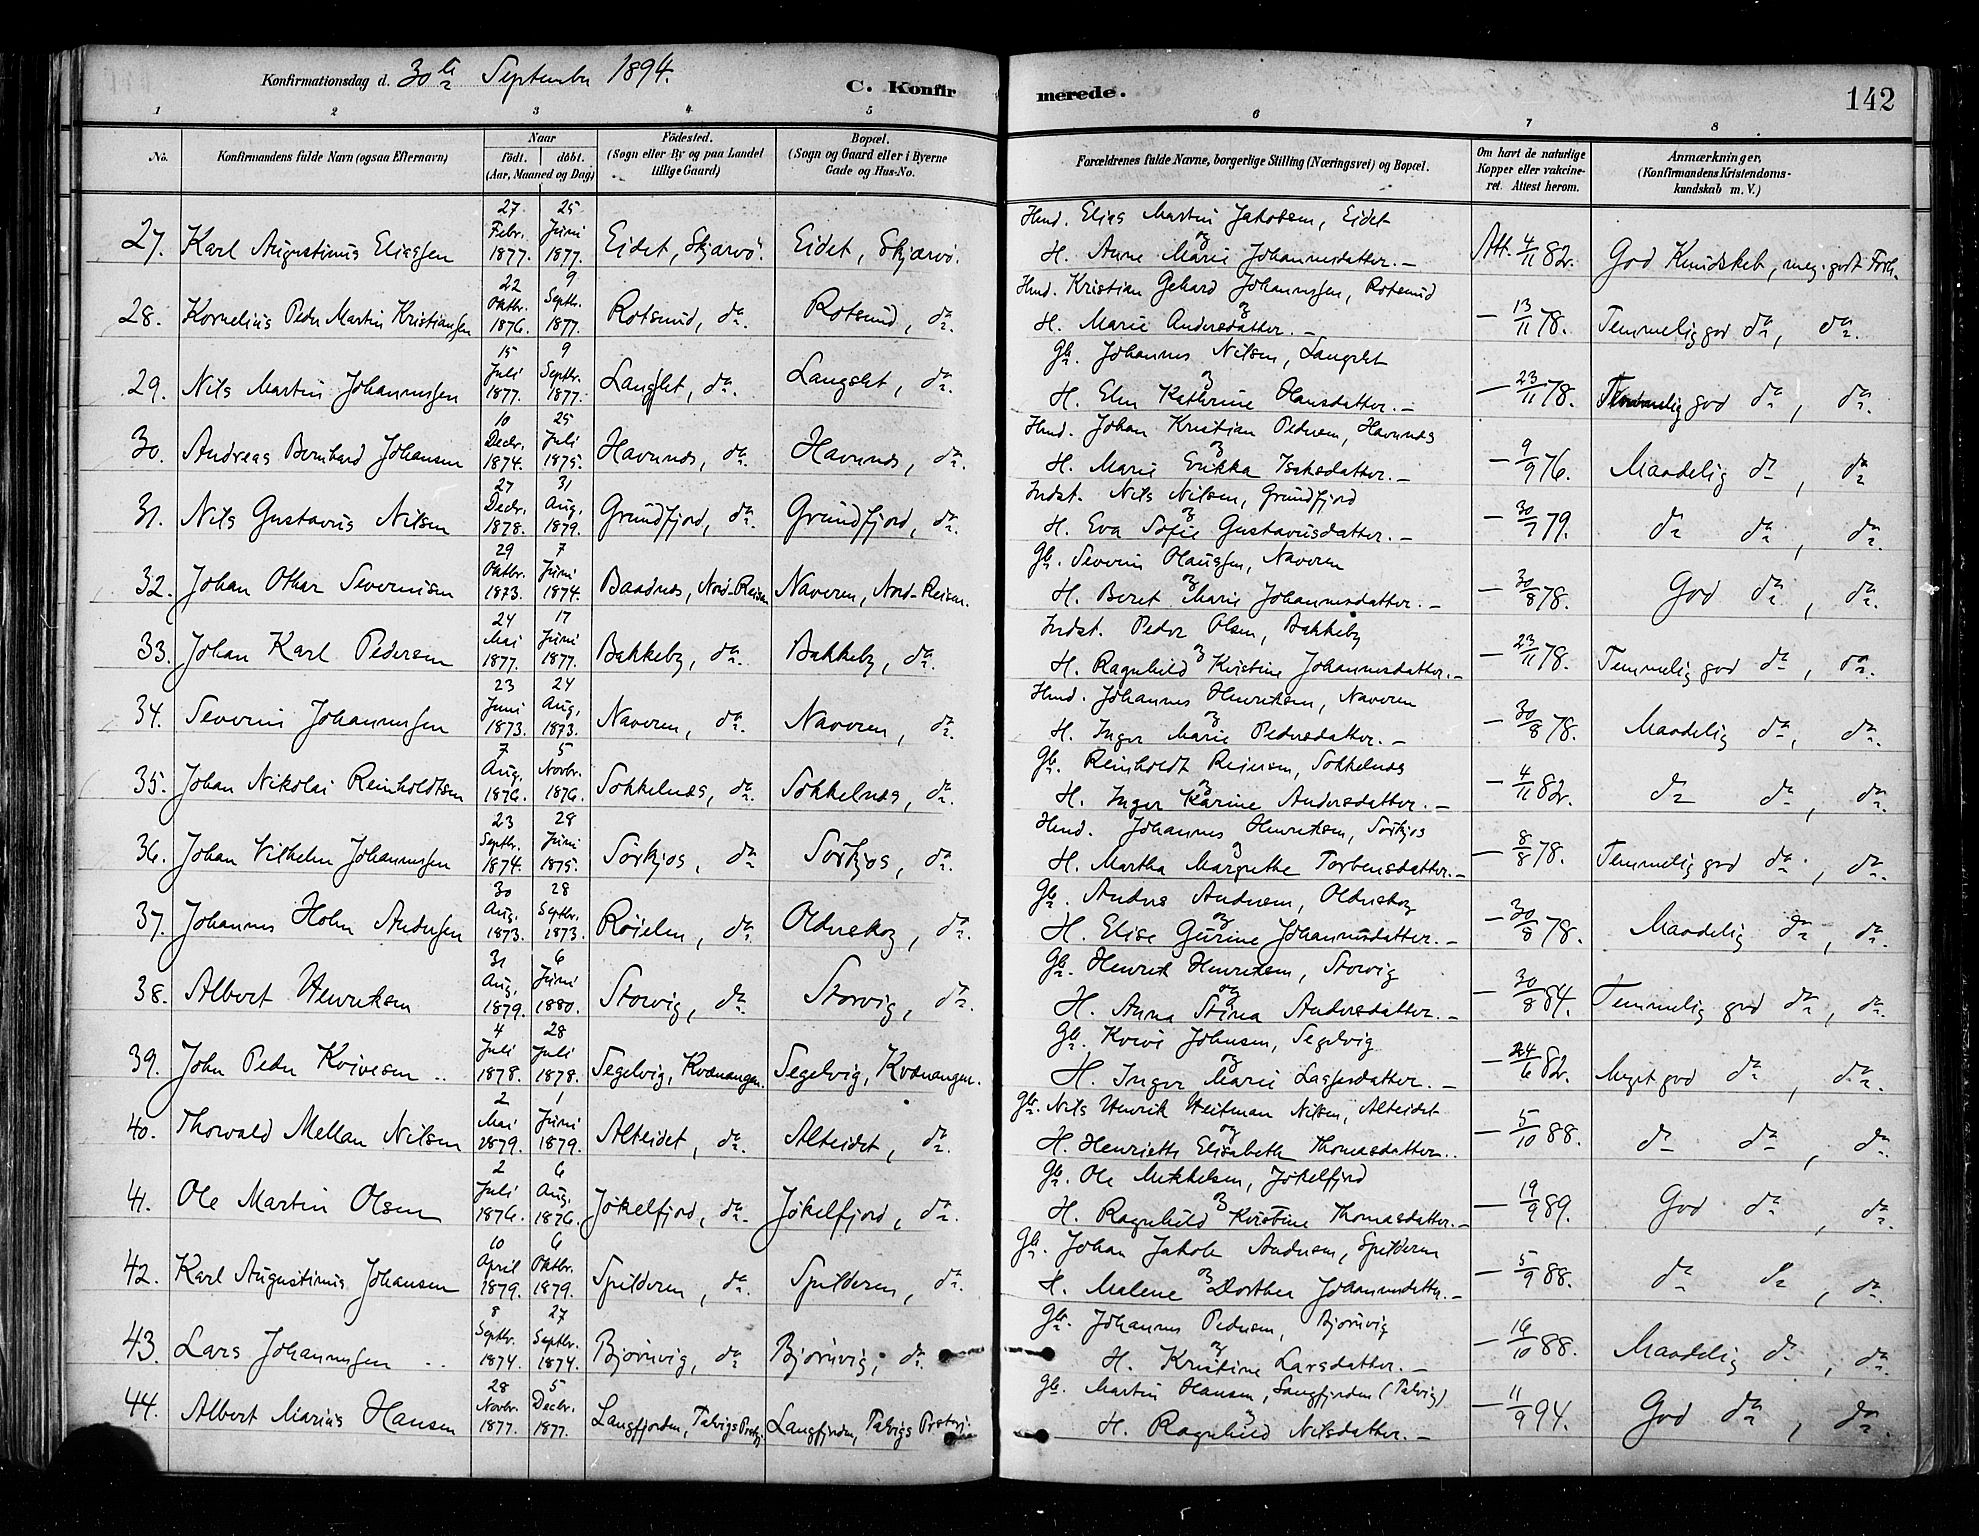 Konfirmationsdag d. 30te September 1894.
C. Konfirmerede.
142
1 2 3 4 5 6 7 8
No. Konfirmandens fulde Navn (ogsaa Efternavn) Naar født. døbt. (Aar, Maaned og Dag) Födested. (Sogn eller By og paa Landet tillige Gaard) Bopæl. (Sogn og Gaard eller i Byerne Gade og Hus-No. Forældrenes fulde Navne, borgerlige Stilling (Næringsvei) og Bopæl. Om havt de naturlige Kopper eller vaccineret. Attest herom. Anmærkninger, (Konfirmandens Kristendomskundskab m. V.)
27. Karl Augustinus Eliassen 27 Febr. 1877. 25 Juni 1877. Eidet, Skjærvö. Eidet, Skjærvö. Hmd. Elias Martin Jakobsen, Eidet og H. Anne Marie Johannesdatter.– Att. 4/11 82. God Kundskab, meg. godt Forh.
28. Kornelius Peder Martin Kristiansen 22 Oktbr. 1876. 9 Septbr. 1877. Rotsund, do. Rotsund, do. Hmd. Kristian Gehard Johannessen, Rotsund og H. Marie Andersdatter.– – 13/11 78. Temmelig god do, do.
29. Nils Martin Johannessen 15 Juli 1877. 9 Septbr. 1877. Langslet, do. Langslet, do. Gb. Johannes Nilsen, Langslet og H. Elen Kathrine Hansdatter.– – 23/11 78. Temmelig god do, do.
30. Andreas Bernhard Johansen 10 Decbr. 1874. 25 Juli 1875. Havnnes, do. Havnnes, do. Hmd. Johan Kristian Pedersen, Havnnes og H. Marie Erikka Isaksdatter.– – 9/9 76. Maadelig do, do
31. Nils Gustavus Nilsen 27 Decbr. 1878. 31 Aug. 1879. Grundfjord, do. Grundfjord, do. Indst. Nils Nilsen, Grundfjord og H. Eva Sofie Gustavusdatter.– – 30/7 79. do do, do.
32. Johan Othar Severinsen 29 Oktbr. 1873. 7 Juni 1874. Baadnes, Nord-Reisen Naveren, Nord-Reisen. Gb. Severin Olaussen, Naveren og H. Beret Marie Johannesdatter.– – 30/8 78. God do, do.
33. Johan Karl Pedersen 24 Mai 1877. 17 Juni 1877. Bakkeby, do. Bakkeby, do. Indst. Peder Olsen, Bakkeby og H. Ragnhild Kristine Johannesdatter.– – 23/11 78. Temmelig god do, do.
34. Severin Johannessen 23 Juni 1873. 24 Aug. 1873. Naveren, do. Naveren, do. Hmd. Johannes Henriksen, Naveren og H. Inger Marie Pedersdatter.– – 30/8 78. Maadelig do, do.
35. Johan Nikolai Reinholdtsen 7 Aug. 1876. 5 Novbr. 1876. Sokkelnes, do. Sokkelnes, do. Gb. Reinholdt Reiersen, Sokkelnes og H. Inger Karine Andersdatter.– – 4/11 82. do do, do.
36. Johan Vilhelm Johannessen 23 Septbr. 1874. 28 Juni 1875. Sörkjos, do Sörkjos, do. Hmd. Johannes Henriksen, Sörkjos og H. Martha Margrethe Torbensdatter.– – 8/8 78. Temmelig god do, do.
37. Johannes Holm Andersen 30 Aug. 1873. 28 Septbr. 1873. Röielen, do. Oldreskog, do. Gb. Anders Andersen, Oldreskog og H. Elise Gurine Johannesdatter.– – 30/8 78. Maadelig do, do.
38. Albert Henriksen 31 Aug. 1879. 6 Juni 1880. Storvig, do. Storvig, do. Gb. Henrik Henriksen, Storvig og H. Anna Stina Andersdatter.– – 30/8 84. Temmelig god do, do.
39. John Peder Kvivesen .. 4 Juli 1878. 28 Juli 1878. Segelvig, Kvænangen. Segelvig, Kvænangen. Gb. Kvive Johnsen, Segelvig og H. Inger Marie Lassesdatter.– – 24/6 82. Meget god do, do.
40. Thorvald Mellan Nilsen 2 Mai 1879. 1 Juni 1879. Alteidet, do. Alteidet, do. Gb. Nils Henrik Heitman Nilsen, Alteidet og H. Henriette Elisabeth Thomasdatter.. – 5/10 88. do do, do.
41. Ole Martin Olsen 2 Juli 1876. 6 Aug. 1876. Jökelfjord, do. Jökelfjord, do. Gb. Ole Mikkelsen, Jökelfjord og H. Ragnhild Kristine Thomasdatter.– – 19/9 89. God do, do.
42. Karl Augustinus Johansen 10 April 1879. 6 Oktbr. 1879. Spilderen, do. Spilderen, do. Gb. Johan Jakob Andersen, Spilderen og H. Malene Dorthea Johannesdatter.– – 5/9 88. do do, do.
43. Lars Johannessen .. 8 Septbr. 1874. 27 Septbr. 1874. Bjørnvig, do Bjørnvig, do. Gb. Johannes Pedersen, Bjørnvig og H. Kristine Larsdatter.– – 16/10 88. Maadelig do, do.
44. Albert Marius Hansen 28 Novbr. 1877. 5 Decbr. 1877. Langfjorden, Talvigs Prestgj. Langfjorden, Talvigs Prestegj. Gb. Martin Hansen, Langfjorden (Talvig) og H. Ragnhild Nilsdatter.– – 11/9 94. God do, do.